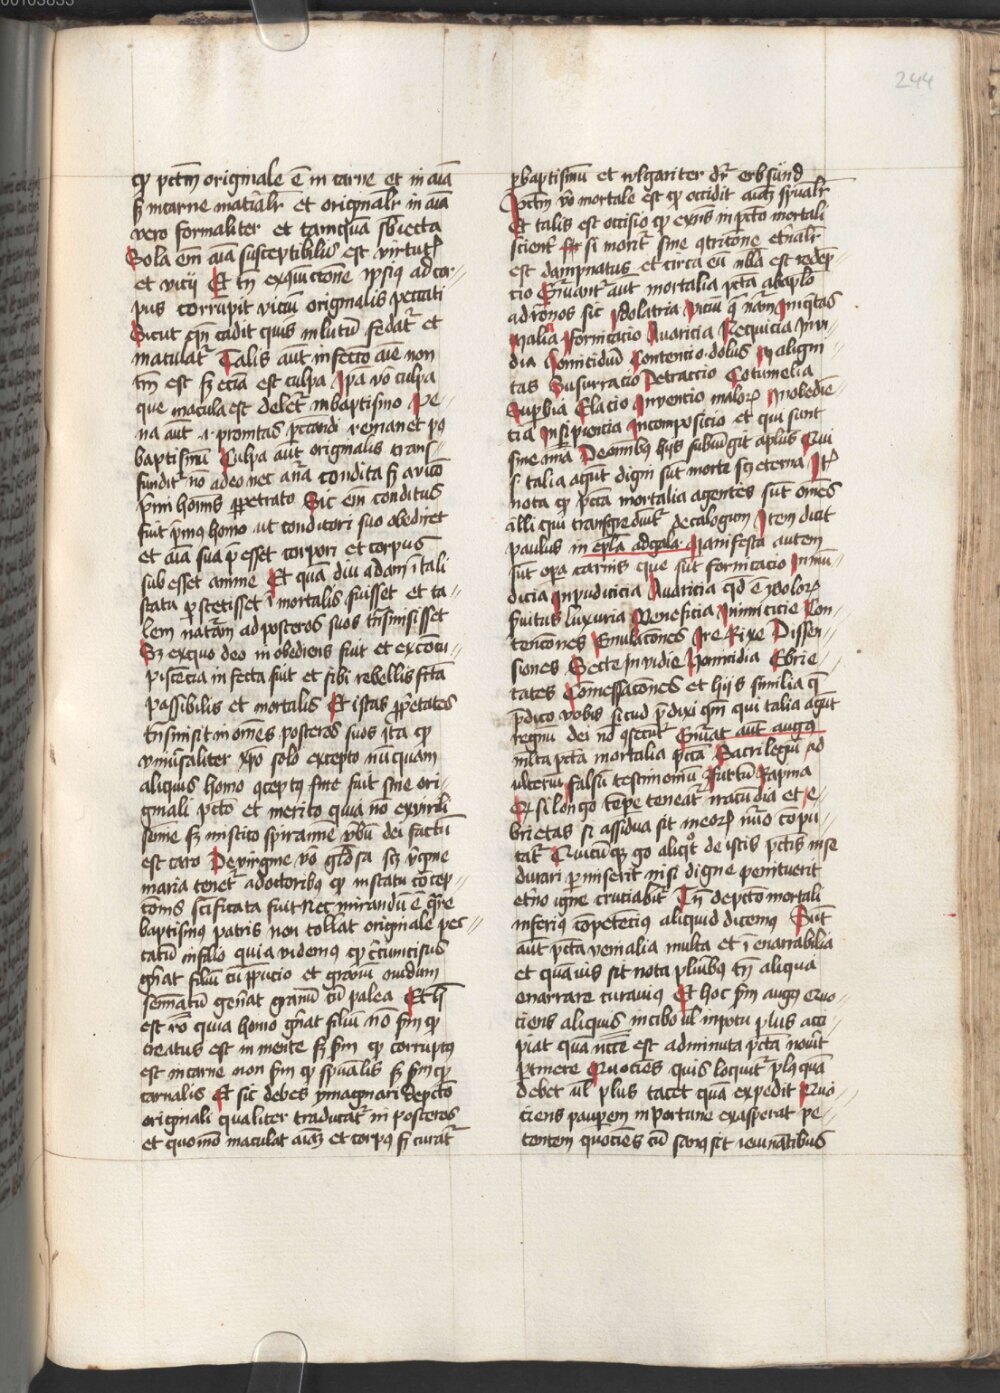 244
qp pctm originale e in carne et in aia
sz incarne matialr et originalr in aia
vero formaliter et tamquam sbiecta
Sola em aia susceptibilis est virtutz
et vicij Et in exquictione ipsiq ad cor
pus corrupit viciu originalis peccati
Sicut cadit quis in lutu fedatr et
maculatr Talis aut infectio aie non
tm est sz ecia est culpa Ipa vo culpa
que macula est deletr in baptismo Pe
na aut et promtas peccandi remanet pq
baptismu Culpa aut originalis trans
funditr no adeo nec aia condita sz avicio
pmi homis ppetrato Sic em conditus
fuit pmq homo ut conditori suo obediret
et aia sua p esset corpori et corpus
sub esset anime Et qua diu adam i tali
statu pstetisset i mortalis fuisset et ta
lem naturam ad posteros suos tnsmisisset
Sz exquo deo in obediens fuit et ex concu
piscecia in fecta fuit et sibi rebellis fcta
passibilis et mortalis Et istas ppetates
tnsmisit in omes posteros suos ita qp
vniusaliter xpo solo excepto nuquam
aliquis homo ceptq fuit sine ori
ginali pcto et merito quia no ex virili
semie sz mistico spiramie vbu dei factu
est caro De virgine vo gl'osa scz vgine
maria tenetr a doctoribq qp in statu concep
cois scificata fuit Nec mirandu e qre
baptismq patris non tollat originale pec
catu in filio quia videmus qp circumcisus
gnat filiu cu ppucio et granu ouidum
seminatu generat granu cu palea Et h
est ro quia homo gnat filiu no sm qp
creatus est in mente sz sm qp corruptq
est in carne non sm qp spualis sz sm qp
carnalis Et sic debes ymaginari de pcto
originali qualiter traducatr in posteros
et quomo maculat aiaz et corpq sz curatr
pbaptismu et vulgariter dr erbsund
Pctm vo mortale est qp occidit aiaz spualr
Et talis est occisio qp exns in pcto mortali
scient si moritr sine qtricione etnalr
est dampnatus et circa eu nlla est redep
cio Enuantr aut mortalia pcta ab aplo
ad romos sic Idolatria viciu q nam Iniqtas
Malia fornicacio Auaricia Nequicia Invi
dia Homicidiu Contencio dolus Maligni
tas Susurracio Detraccio Cotumelia
Supbia Elacio Inuentio malorz Inobedie
tia Insipientia Incompositio et qui sunt
sine mia De omibq hijs subiungit aplus Qui
talia agut digni sut morte scz eterna Itz
nota qp pcta mortalia agentes sut omes
illi qui transgrediutr decalogum Item dicit
paulus in epla ad gala Manifesta autem
sut opa carnis que sut fornicacio Inmu
dicia Inpudicicia Auaricia qd e ydolorz
fuitus luxuria Veneficia Inimicicie Con
tencones Emulacones Ire Rixe Dissen
siones Secte Inuidie Homicidia Ebrie
tates Comessacones et hijs similia q
pdico vobis sicud pdixi qm qui talia agut
regnu dei no qsecutr Enuat aut augq
mlta pcta mortalia pcta Sacrilegiu ad
ulteriu falsu testimoniu Furtu Rapina
Et si longo tepe teneatr iracudia et e
brietas si assidua sit in eorz nuo copu
tatr Quicuqz go aliqt de istis pctis in se
durari pmiserit nisi digne penituerit
etno igne cruciabitr Tn de pcto mortali
inferius copetecius aliquid dicemq Sut
aut pcta venialia multa et i enarrabilia
et quauis sit nota plimbq tn aliqua
enarrare curauiq Et hoc sm augq Quo
ciens aliquis in cibo ul in potu plus acci
piat qua necce est ad minuta pcta nouit
ptinere Quociens quis loquitr plq qua
debet ul plus tacet qua expedit Quo
ciens paupem inportune exasperat pe
tentem quocies cu sanq sit ieiunatibus